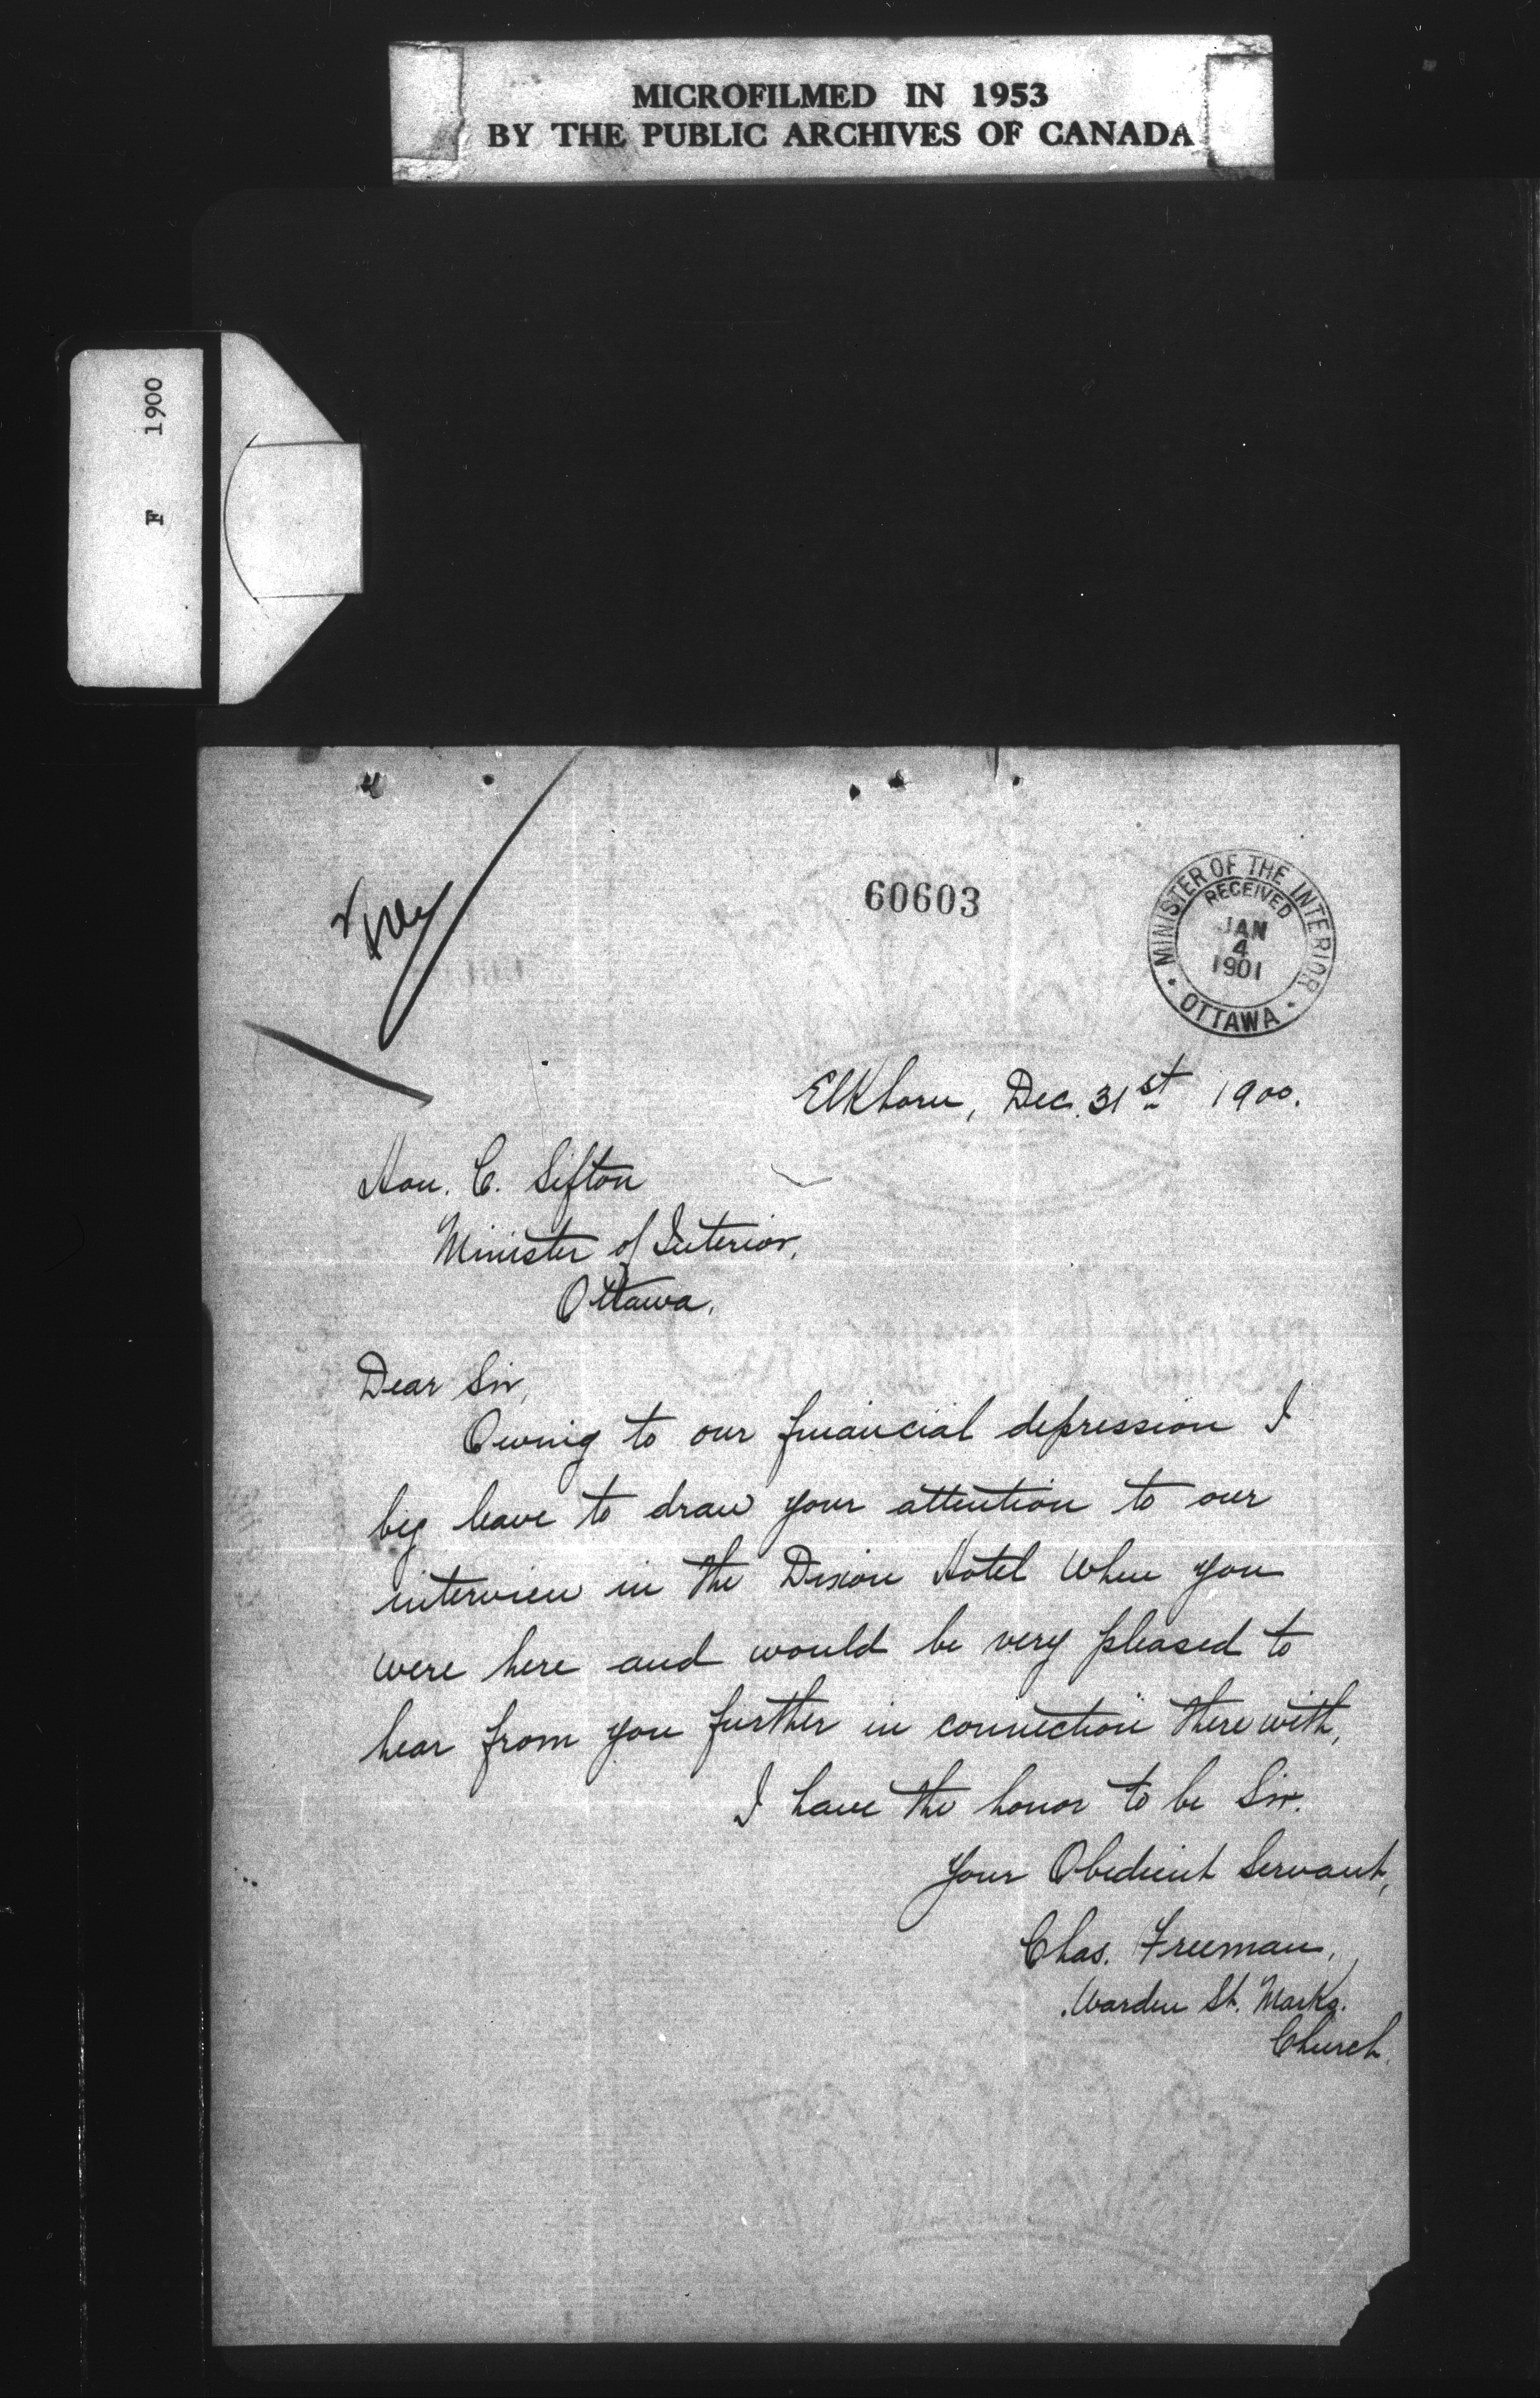 MICROFILMED IN 1953
BY THE PUBLIC ARCHIVES OF CANADA
F 1900
60603
MINISTER OF THE INTERIOR
RECEIVED
JAN
4
1901
OTTAWA
Elkhorn, Dec. 31st 1900.
Hon. C. Sifton
Minister of Interior,
Ottawa,
Dear Sir,
Owing to our financial depression I
beg leave to draw your attention to our
interview in the Dixon Hotel when you
were here and would be very pleased to
hear from you further in connection there with,
I have the honor to be Sir.
Your Obedient Servant,
Chas. Freeman,
Warden St. Marks.
Church.